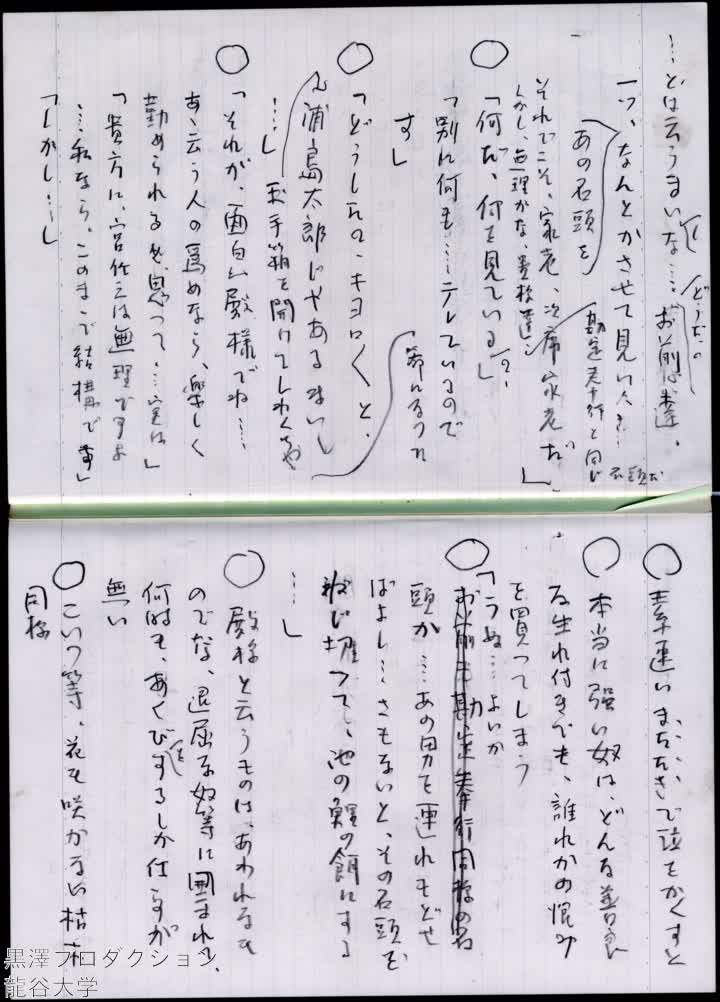 …とは云うまいな…お前達、
どうだ。
一つ、なんとかさせて見い
あの石頭を
勘定奉行と同じ
石頭だ
それでこそ、家老、次席家老だ」
しかし、無理かな、貴様達」
「何だ、何を見ている」
「別に何も……テレているので
す」
「どうしたの、キョロくと、
浦島太郎じやあるまいし
……」
玉手箱を開けてしわくちや
「それが、面白い殿様でね……
あゝ云う人の為めなら、楽しく
勤められると思って……実は」
「貴方に、宮仕えは無理ですよ
…私なら、このまゝで結構です」
「しかし……」
素速いまばたきで頭をかくすと
本当に強い奴は、どんな善良
な生れ付きでも、誰れかの恨み
を買ってしまう
「うぬ……よいか
お前も勘定奉行同様の石
頭か…あの男を連れもどせ
ばよし…さもないと、その石頭を
捩じ切って、池の鯉の餌にする
……」
殿様と云うものは、あわれなも
のでな、退屈な奴等に囲まれて、
何時も、あくびをするしか仕方が
無い
こいつ等、花も咲かない枯木
同様
黒澤プロダクション
龍谷大学